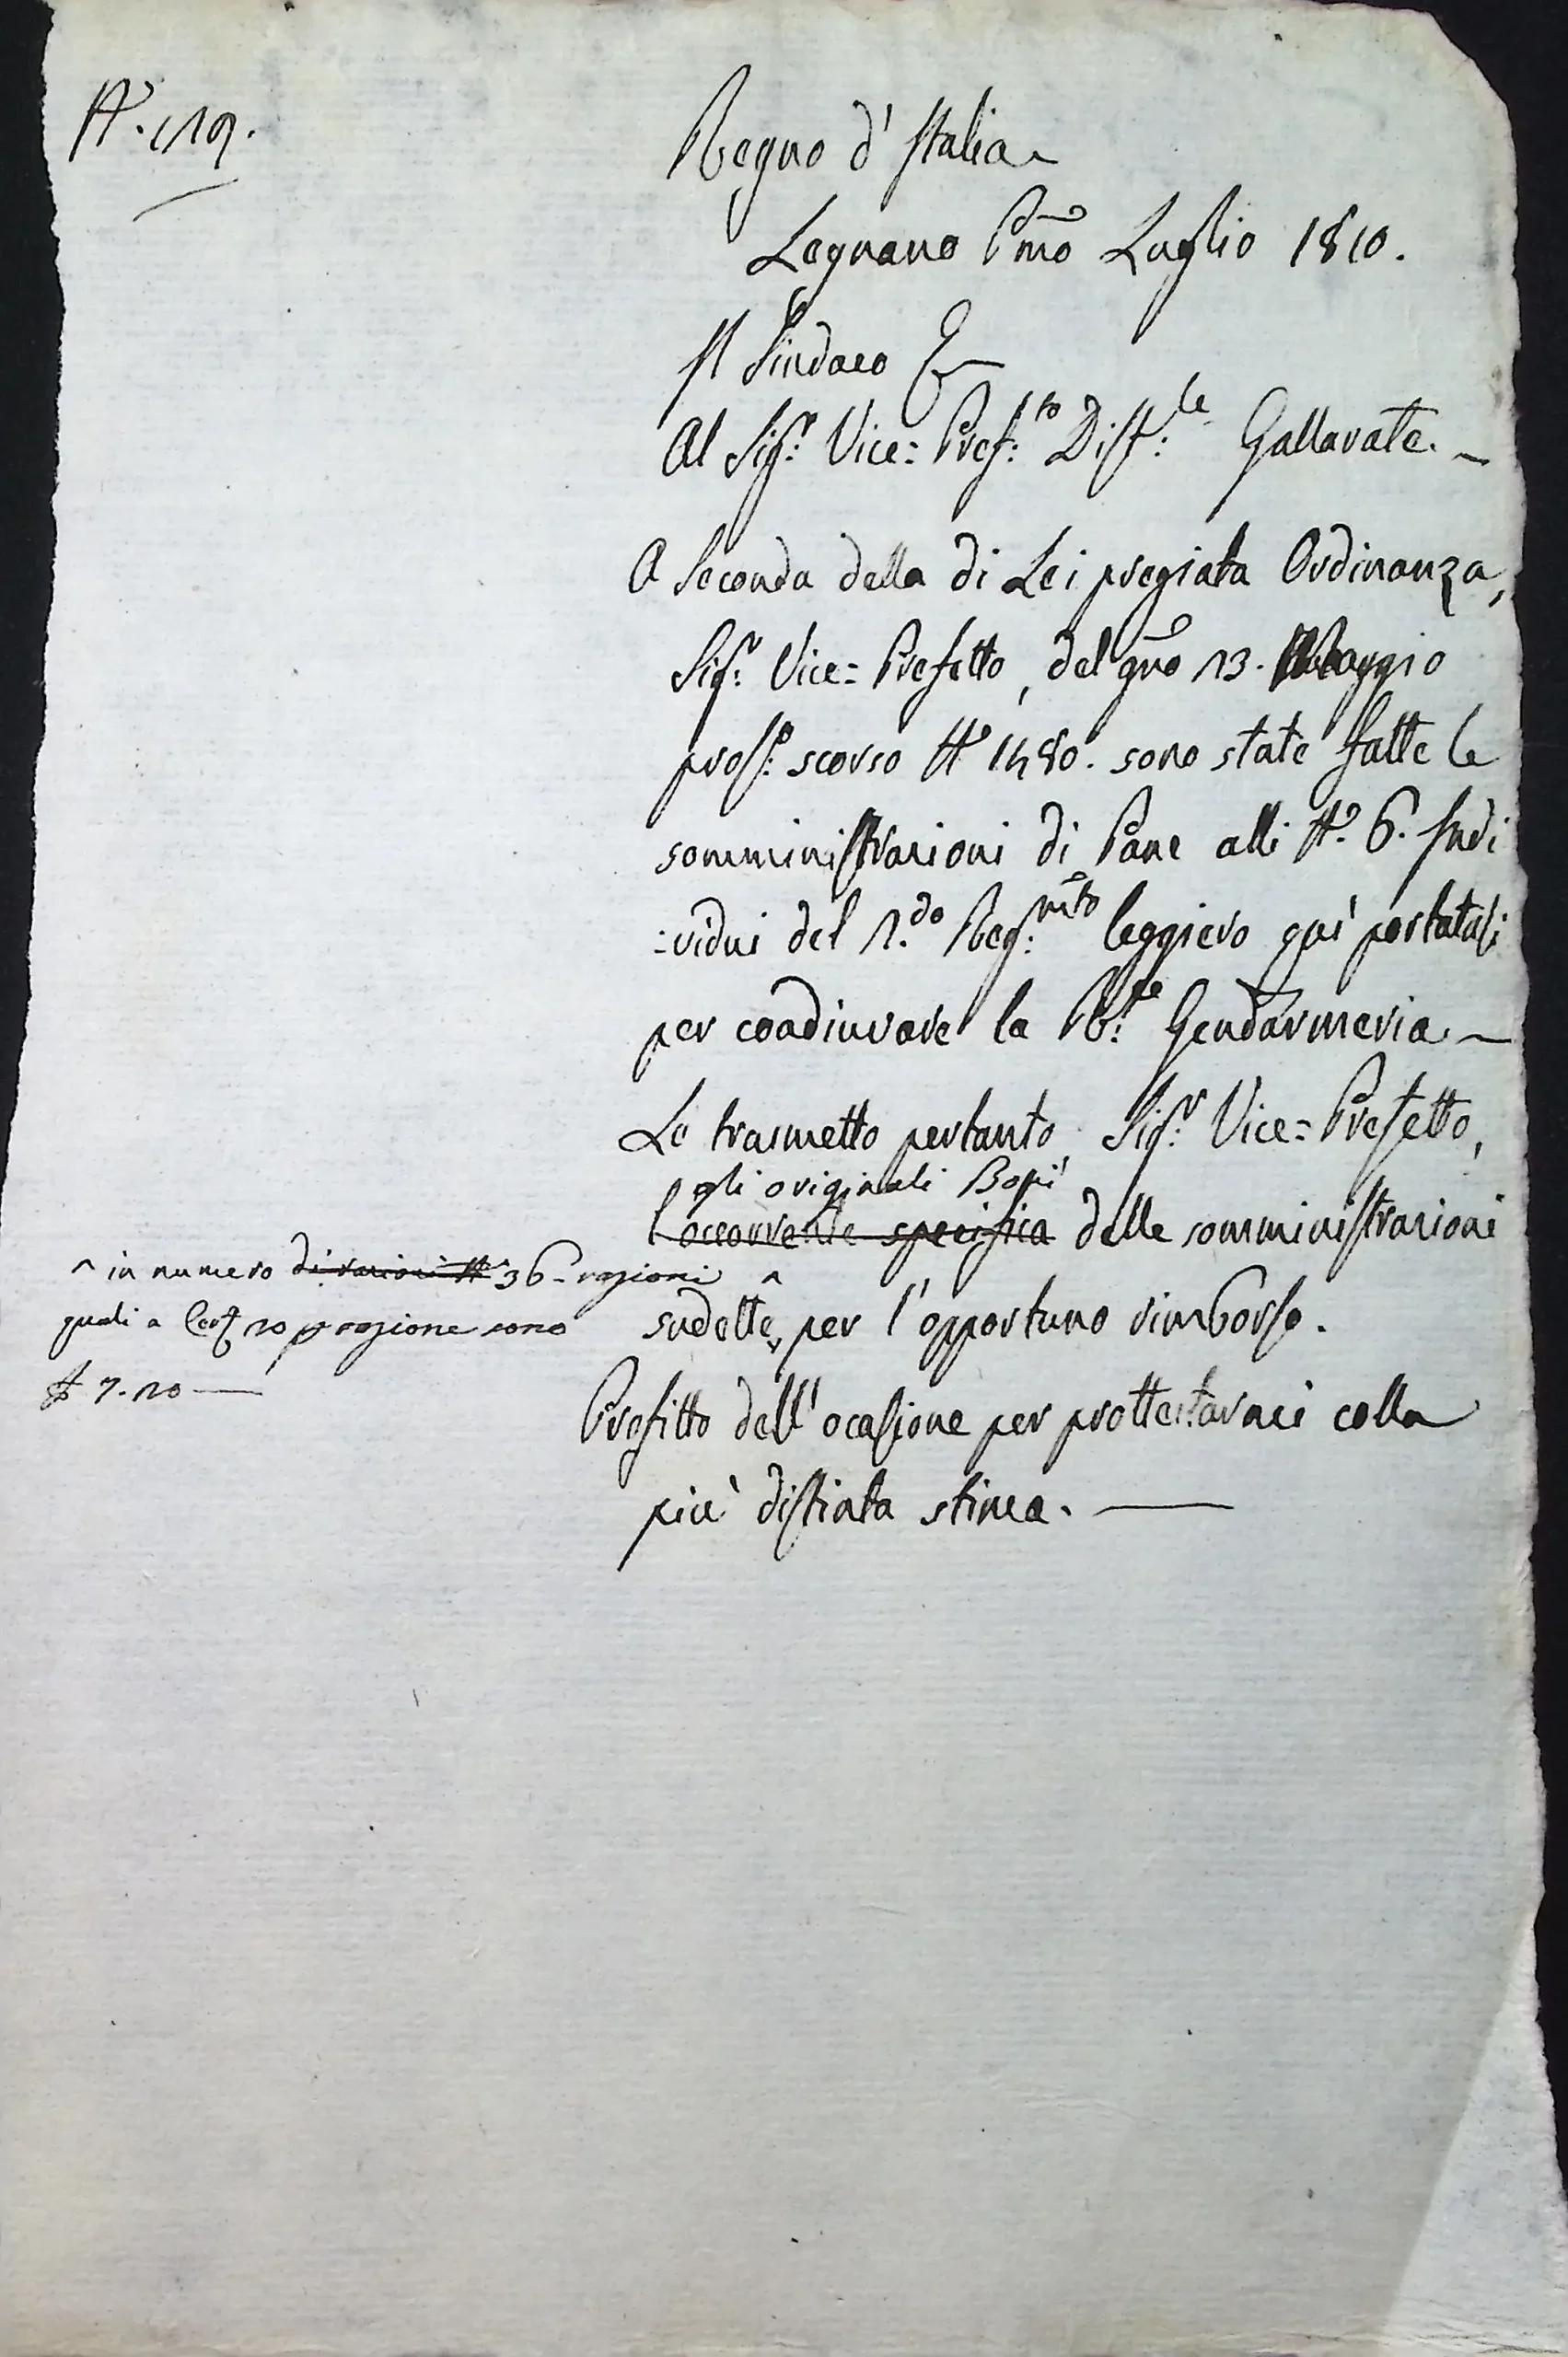 N.° 119.
Regno d'Italia
Legnano Pmo Luglio 1810.
Il Sindaco
Al Sig.r Vice=Pref.to Dist.le Gallarate.
A Seconda della di Lei pregiata Ordinanza,
Sig.r Vice=Prefetto, del gno 13. Maggio
pros.o scorso N.° 1480. sono state fatte le
somministrazioni di Pane alli N.° 6. Indi
=vidui del 2.do Reg.mto leggiero quì portatisi
per coadiuvare la R.le Gendarmeria.
Le trasmetto pertanto, Sig.r Vice=Prefetto,
gli originali Boni
l'occorrente specifica delle somministrazioni
^ in numero di razioni N.° 36 razioni ^
quali a Cent. 20 p razione sono
7.20
sudette, per l'opportuno rimborso.
Profitto dell'ocasione per prottestarmi colla
più distinta stima.